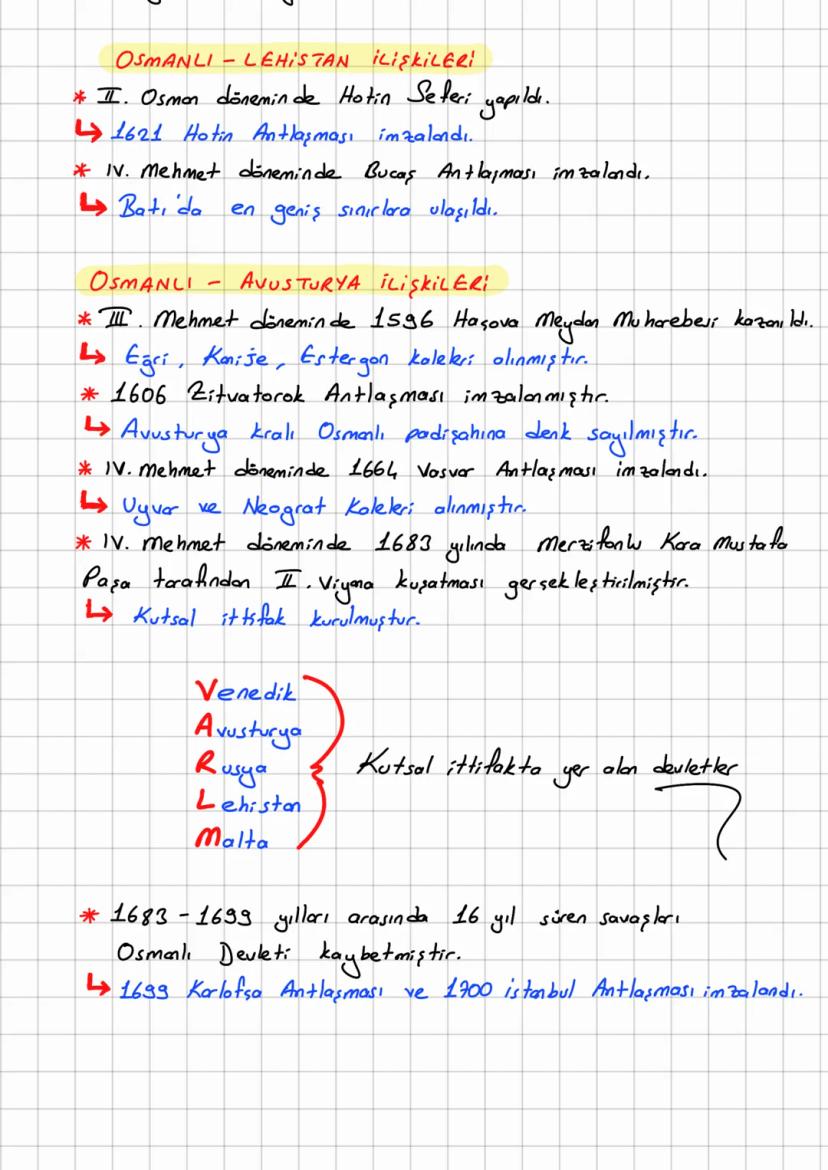 OSMANLI - LEHİSTAN İLİŞKİLERİ
* II. Osman döneminde Hotin Seferi yapıldı.
↳ 1621 Hotin Antlaşması imzalandı.
* IV. Mehmet döneminde Bucaş Antlaşması imzalandı.
↳ Batı'da en geniş sınırlara ulaşıldı.
OSMANLI - AVUSTURYA İLİŞKİLERİ
* III. Mehmet döneminde 1596 Haçova Meydan Muharebesi kazanıldı.
↳ Eğri, Kanije, Estergon kaleleri alınmıştır.
* 1606 Zitvatorok Antlaşması imzalanmıştır.
↳ Avusturya kralı Osmanlı padişahına denk sayılmıştır.
* IV. Mehmet döneminde 1664 Vasvar Antlaşması imzalandı.
↳ Uyvar ve Neograt Kaleleri alınmıştır.
* IV. Mehmet döneminde 1683 yılında Merzifonlu Kara Mustafa
Paşa tarafından II. Viyana kuşatması gerçekleştirilmiştir.
↳ Kutsal ittifak kurulmuştur.
Venedik
Avusturya
Rusya
Lehistan
Malta
Kutsal ittifakta yer alan devletler
* 1683 - 1699 yılları arasında 16 yıl süren savaşları
Osmanlı Devleti kaybetmiştir.
↳ 1699 Karlofça Antlaşması ve 1700 istanbul Antlaşması imzalandı.